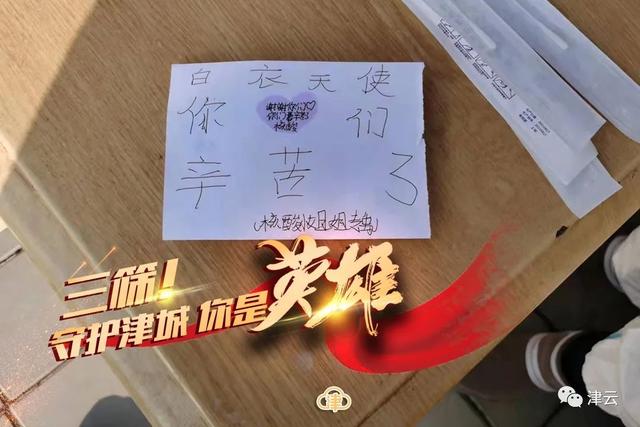 白衣天使
你们
谢谢你们♡
你们最辛苦
辛苦了
(核酸小姐姐专岛)
三筛!
守护津城 你是英雄
津
津云